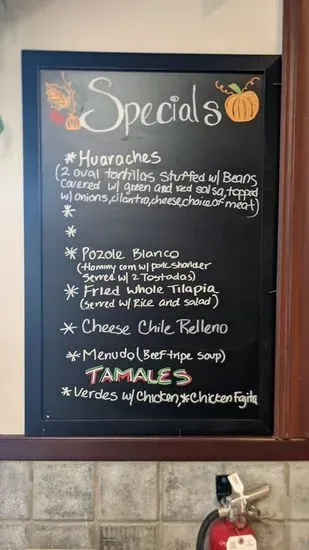 Specials
* Huaraches
(2 oval tortillas stuffed w/ Beans
covered w/ green and red salsa, topped
w/ onions, cilantro, cheese, choice of meat)
*
*
* Pozole Blanco
(Hommy corn w/ pork shoulder
served w/ 2 Tostadas)
* Fried Whole Tilapia
(served w/ Rice and salad)
* Cheese Chile Relleno
* Menudo (Beef tripe soup)
TAMALES
* Verdes w/ Chicken, * Chicken Fajita